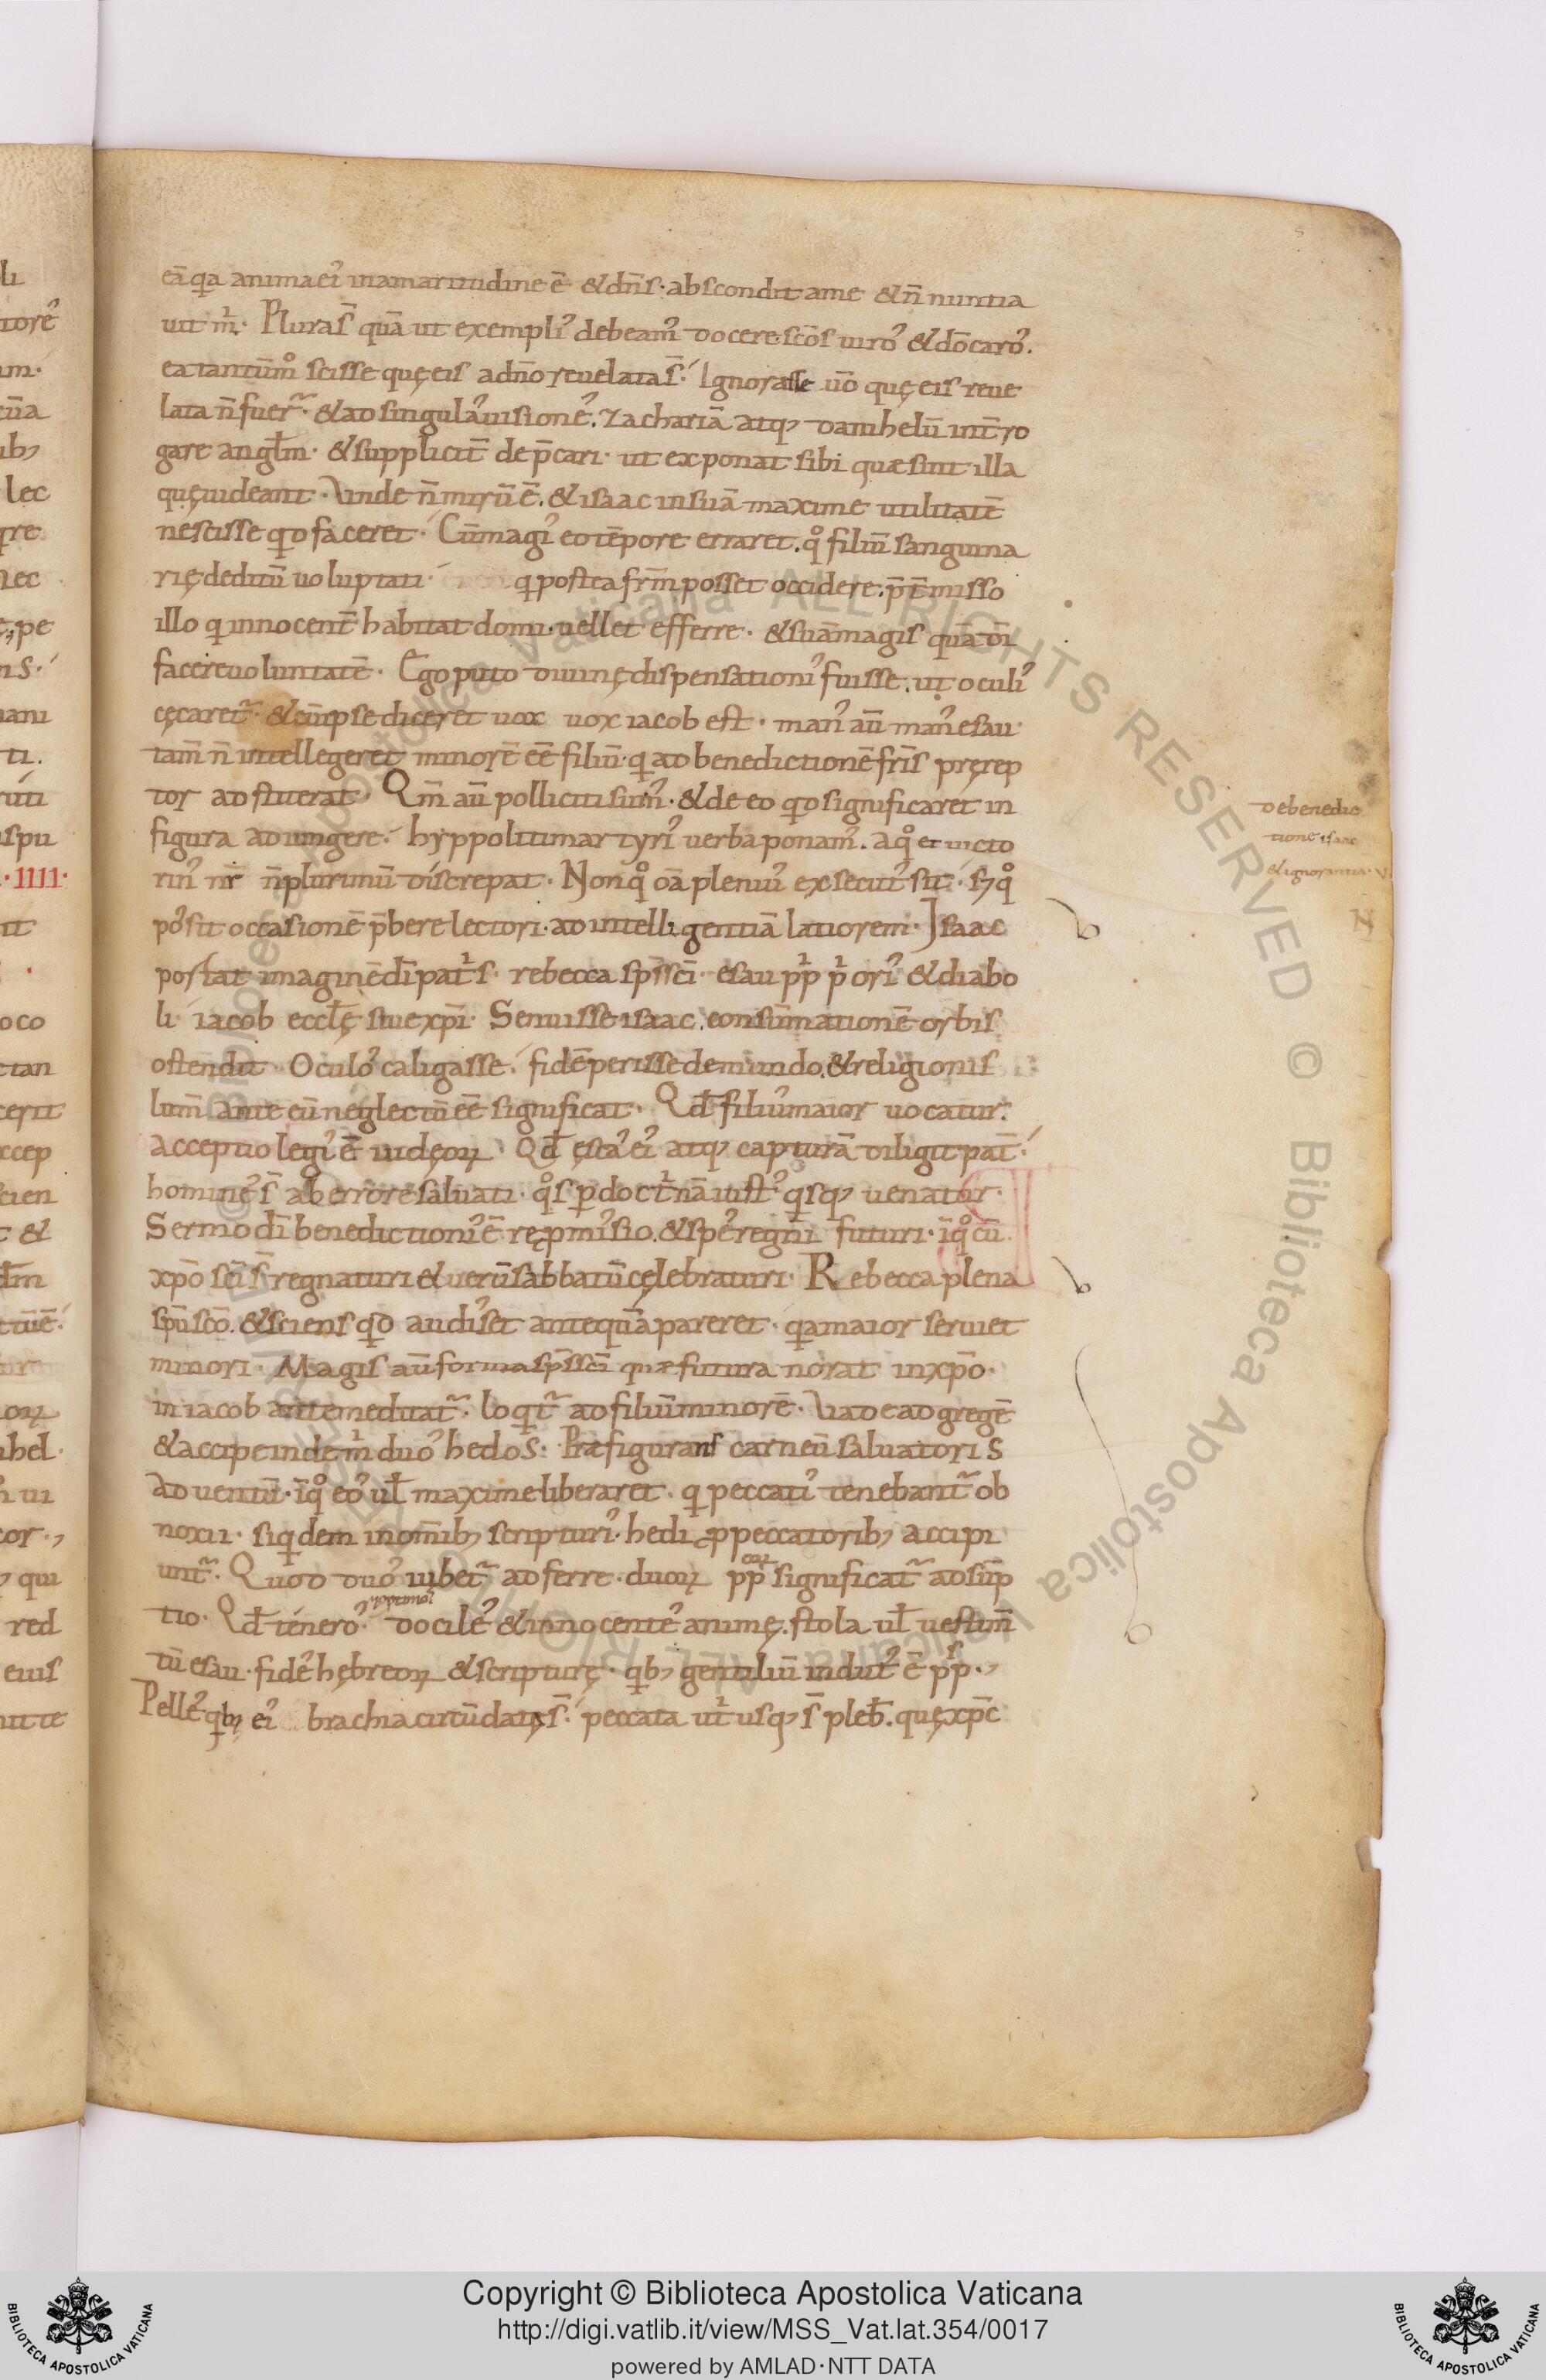 eā qa anima ei᾽ inamaritudine ē &dn̄s· abscondit ame &n̄ nuntia
uit m̍· Plura s̄ quā ut exempli᾽ debeam᾽ docere· scōs uiro᾽ &dō caro᾽.
ea tantūm̊ scisse quę eis adn̄o reuelata s̄· Ignorasse ūo quę eis reue
lata n̄ fuer̃· &ad singula᾽ uisione᾽. zachariā atq; danihelū int̄ro
gare angl̄m· &supplicit̄ dep̄cari· ut exponat sibi quæ sint illa
quę uideant· Unde n̄ mirū ē. &isaac insuā maxime utilitatē
nescisse qd faceret· Cū magi᾽ eo tēpore erraret. q̊ filiū sanguina
rię deditū uoluptati· q postea fr̄m posset occidere. p̄t̄misso
illo q innocent̄ habitat domi· uellet efferre· &suā magis quā dī
facere uoluntatē· Ego puto diuinę dispensationi᾽ fuisse. ut oculi᾽
cęcaret̃· &cū ipse diceret uox uox iacob est· man᾽ aū man᾽ esau·
tam̄ n̄ intellegeret minorē eē filiū· q ad benedictionē fr̄is pręrep
tor adstiterat· Qm̄ aū polliciti sum᾽· &de eo qd significaret in
figura adiungere· hyppoliti martyri᾽ uerba ponam᾽. aq̊ et uicto
rin᾽ nr̄ n̄ plurimū discrepat· Non q̊ oā pleni᾽ exsecut᾽ sit· s; q̊
po᾽sit occasionē p̄bere lectori· ad intelligentiā latiorem· Isaac
portat imaginē dī pat̍s· rebecca sp̄s sc̄i· esau pp̍ p̍ori᾽ &diabo
li· iacob eccl̄ę siue xp̄i· Senuisse isaac. consūmationē orbis
ostendit· Oculo᾽ caligasse· fidē perisse demundo. &religionis
lum̄ ante eū neglectū eē significat· Qd̄ fili᾽ maior uocatur·
acceptio legi᾽ ē iudęoꝝ Qd̄ ęsca᾽ ei᾽ atq; capturā diligit pat̄·
homine᾽ s̄ ab errore saluati· q̊s p doct̍nā iust᾽ qsq; uenatur·
Sermo dī benedictioni᾽ ē repmi᾽sio. &spe᾽ regni futuri· īq̊ cū
xp̄o sc̄i s̄ regnaturi &uerū sabbatū cęlebraturi· Rebecca plena
spū scō. &sciens qd audi᾽set antequā pareret· qa maior seruiet
minori· Magis aū forma sp̄s sc̄i quæ futura norat inxp̄o·
in iacob ante meditat̃· loqt̃ ad filiū minorē· Uade ad gregē
&accipe inde m̍ duo᾽ hedos· Præfigurans carneū saluatoris
aduentū· īq̊ eo᾽ ul̄ maxime liberaret· q peccati᾽ tenebant̃ ob
noxii· siqdem inomīb; scripturi᾽· hedi ꝓ peccatorib; accipi
unt̃· Quod duo᾽ iubet̃ adferre· duoꝝ pp̍oꝝ significat̃ adsūp
tio· Qd̄ tenero᾽ &optimo᾽· docile᾽ &innocente᾽ animę. stola ul̄ uestim̄
tū esau· fide᾽ hębreoꝝ &scripturę· qb; gentiliū indut᾽ ē pp̍s·,
Pelle᾽ qb; ei᾽ brachia circūdatę s̄· peccata ut̍usq; s̄ pleb̄. quę xp̄c
debenedic
tione isaac
&ignorantia· V
N
Copyright © Biblioteca Apostolica Vaticana
http://digi.vatlib.it/view/MSS_Vat.lat.354/0017
powered by AMLAD·NTT DATA
BIBLIOTECA APOSTOLICA VATICANA
BIBLIOTECA APOSTOLICA VATICANA